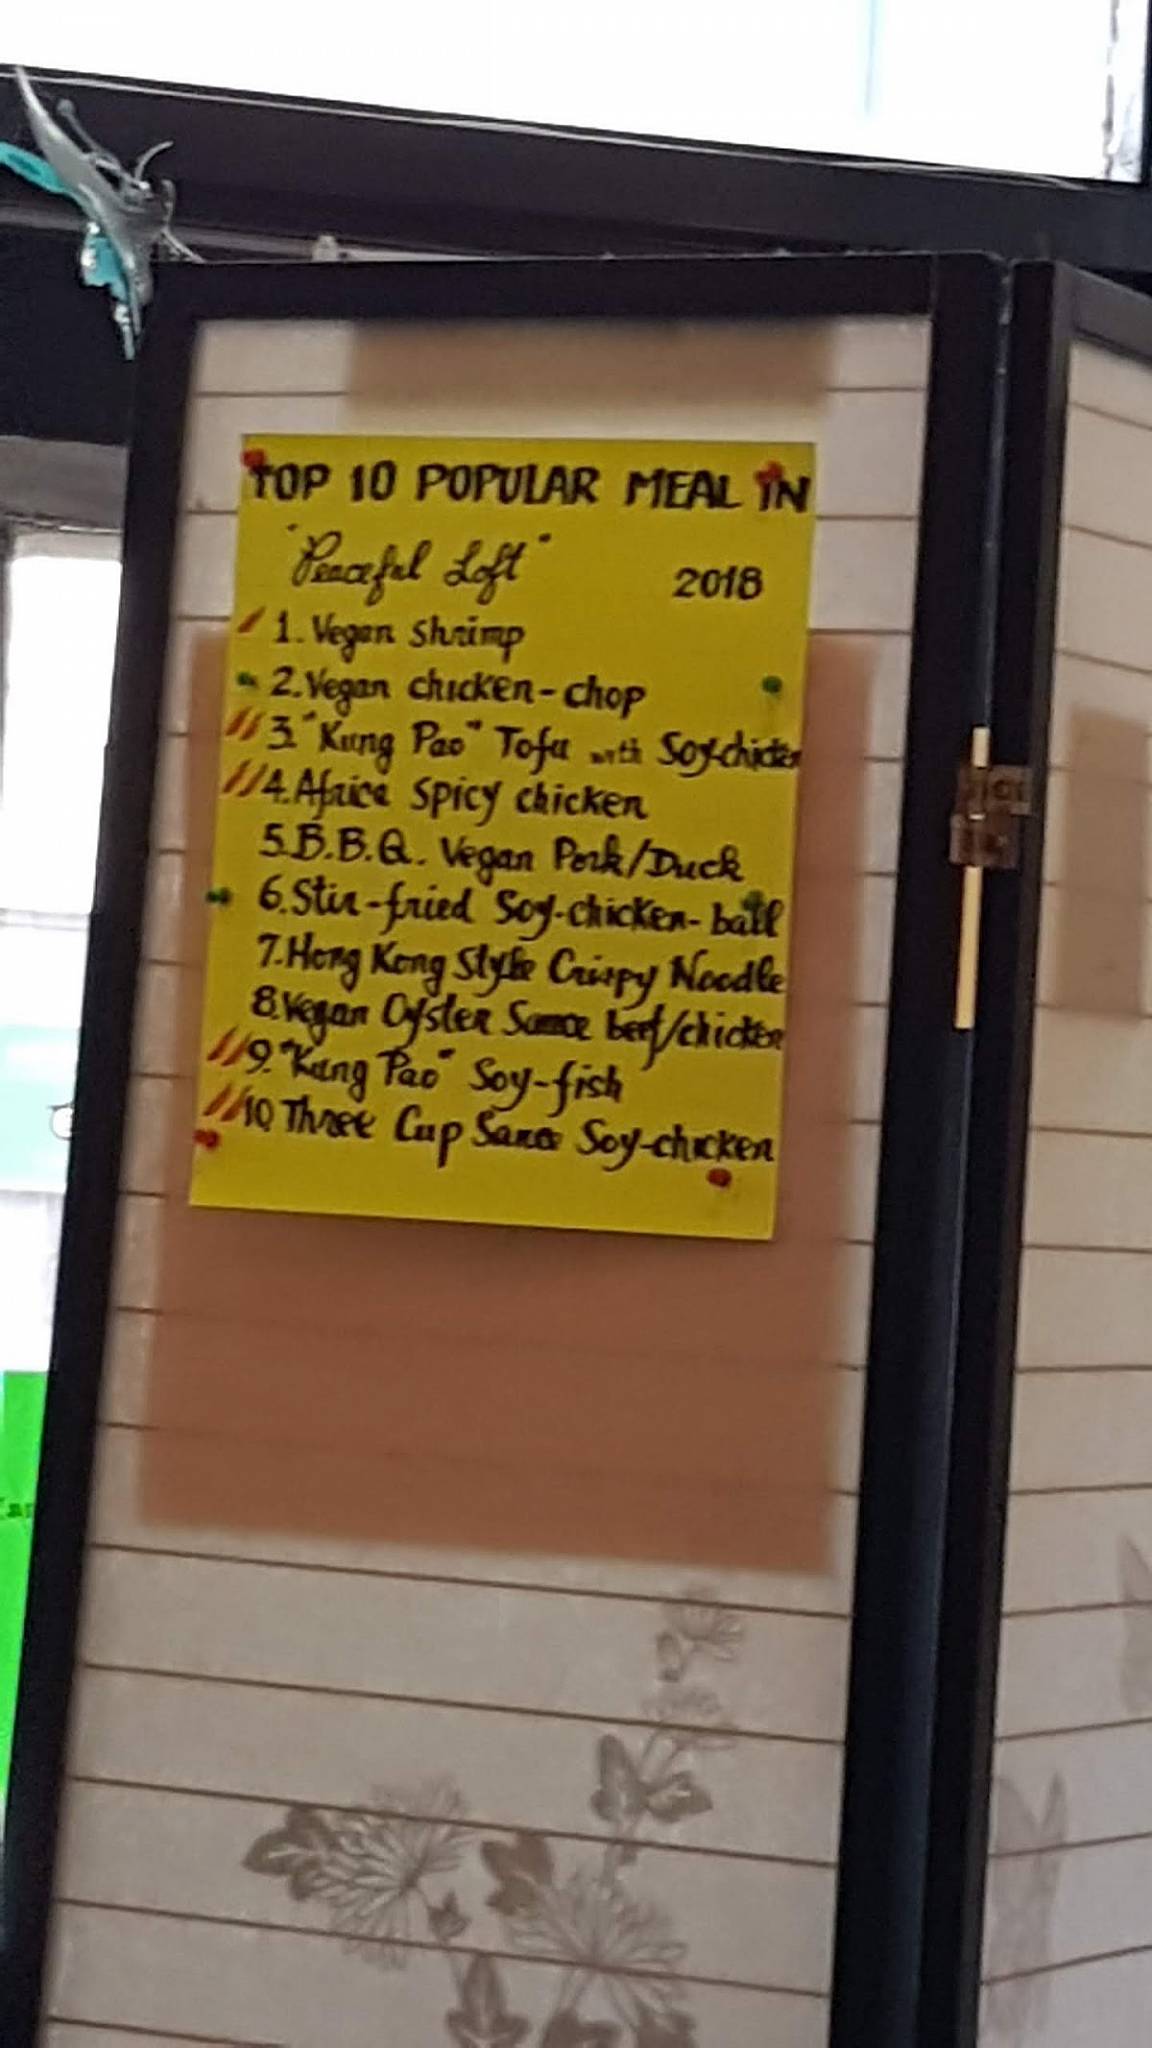 TOP 10 POPULAR MEAL IN
"Peaceful Loft" 2018
1. Vegan Shrimp
2. Vegan chicken-chop
3. "Kung Pao" Tofu with Soy-chicken
4. Africa Spicy chicken
5. B.B.Q. Vegan Pork/Duck
6. Stir-fried Soy-chicken-ball
7. Hong Kong Style Crispy Noodle
8. Vegan Oyster Sauce beef/chicken
9. "Kung Pao" Soy-fish
10. Three Cup Sauce Soy-chicken